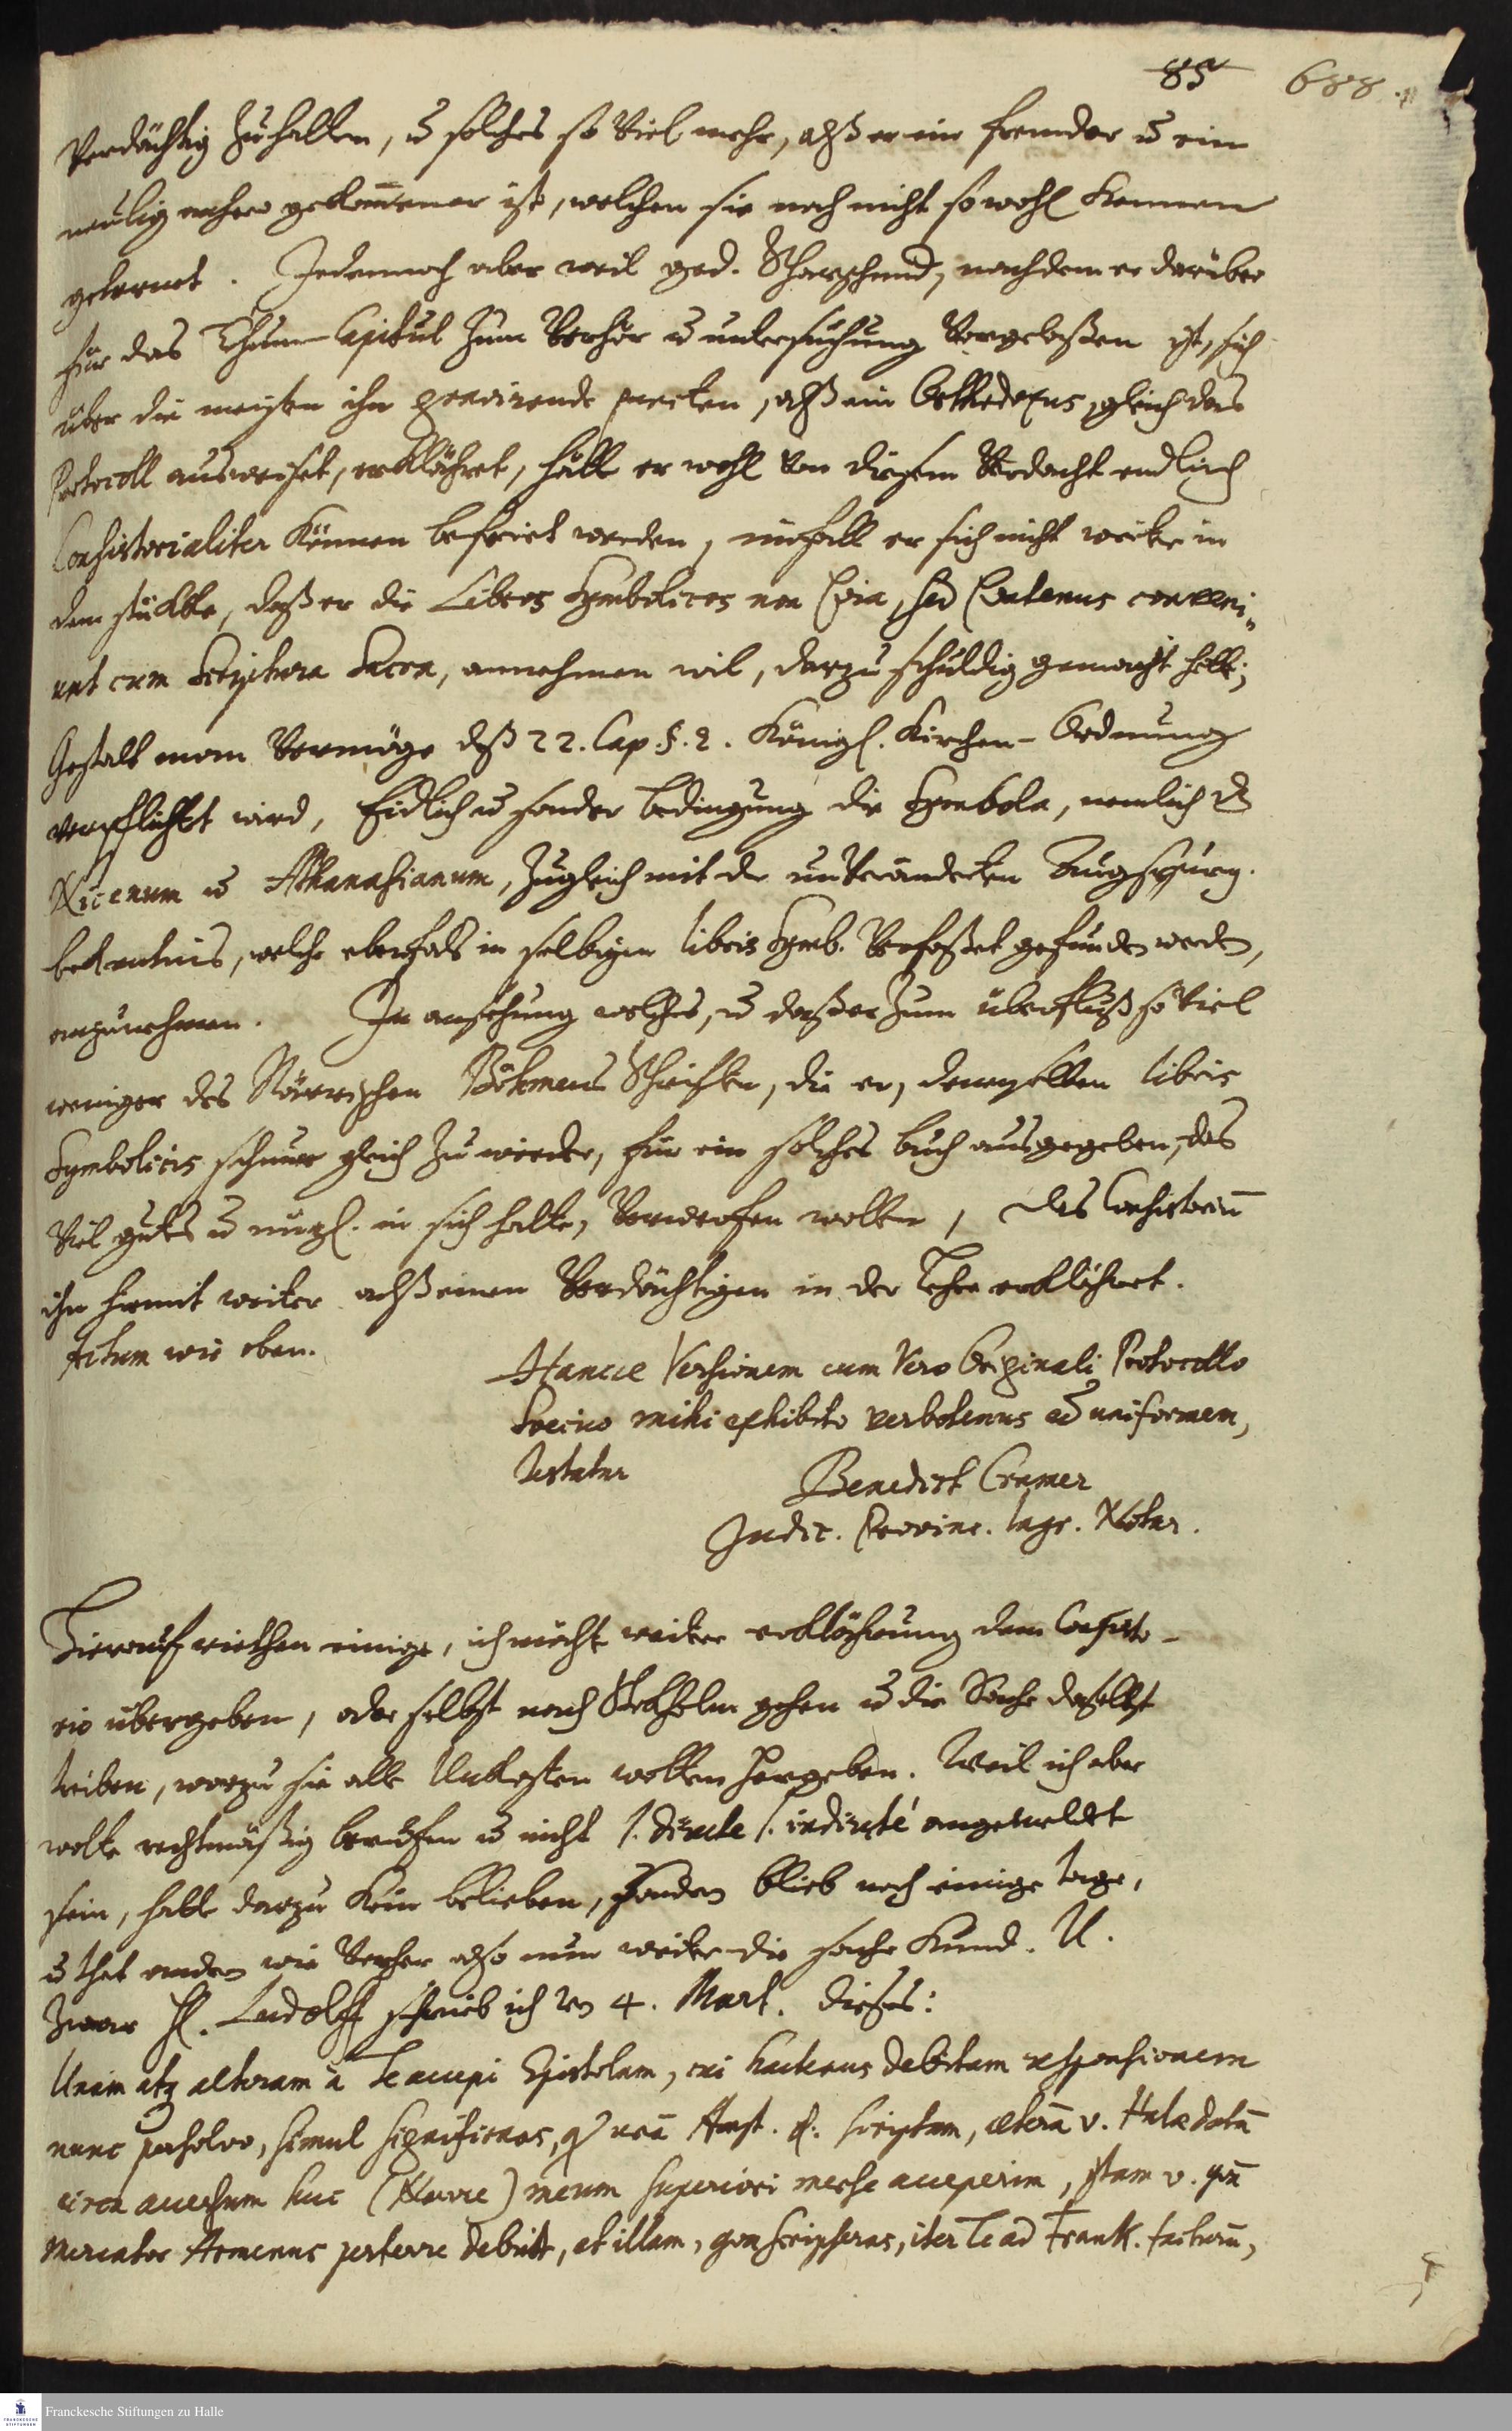 85 688.
Verdächtig zuhalten, u solches so Viel mehr, alß er ein frembder u ein
neulig anhero gekom̄ener ist, welchen sie noch nicht so wohl kennen
gelernet. Jedennoch aber weil ged. Scharschmid, nachdem er darüber
für das Thum-Capitul zum Verhör u untersuchung Vorgelaßen ist, sich
über die meisten ihn gravirende puncten, alß ein Orthodoxus, gleich das
Protocoll ausweiset, erklähret, hätte er wohl von diesem Verdacht endlich
Consistorialiter können befreiet werden, imfall er sich nicht weiter in
dem stükke, daß er die Libros Symbolicos non Qvia, sed Qvatenus conveni„
unt cum Scriptura Sacra, annehmen wil, darzu schuldig gemacht hätte;
Gestalt man Vermöge deß 22. Cap. §. 2. Königl. Kirchen-Ordnung
verpflichtet wird, Eidlich u sonder bedingung die Symbola, nemlich d
Nicenum u Athanasianum, zugleich mit der unVeränderten Augspurg.
bekentnis, welche ebenfals in selbigen libris Symb. Verfaßet gefunden werden,
anzunehmen. In ansehung welches, u daß er zum überfluß so Viel
weniger des Närrischen Böhmens Schriften, die er, denenselben libris
Symbolicis schnur gleich zu wieder, für ein solches buch ausgegeben, das
Viel gutes u nüzl. in sich halte, Verwerfen wollen, das Consistoriū
ihn hiemit weiter alß einen Verdächtigen in der Lehre erklähret.
Actum wie oben.
Hancce Versionem cum Vero Originali Protocollo
Svecico mihi exhibito verbotenus e&#x17F;&#x17F;e uniformem,
testatur
Benedict Cramer
Judic. Provinc. Ingr. Notar.
Hierauf riethen einige, ich möchte weitere erklährung dem Consisto-
rio übergeben, oder selbst nach Stokholm gehen u die Sache daselbst
treiben, worzu sie alle Unkosten wolten hergeben. Weil ich aber
wolte rechtmäßig berufen u nicht /. directe /. indirecte angemeldet
sein, hatte darzu kein belieben, sondern blieb noch einige tage,
u that andern wie Vorher also nun weiter die sache kund. U.
zwar H. Ludolff schrieb ich den 4. Mart. dieses:
Unam atq alteram à Te accepi Epistolam, cui hactenus debitam responsionem
nunc persolvo, simul significans, qd unā Amst. scriptam, alterā v. Hala datā
circa accessum huc (Narvae) meum superiori mense acceperim, istam v. quā
Mercator Armenus perferre debuit, et illam, qua scripseras, iter Te ad Frank. facturū,